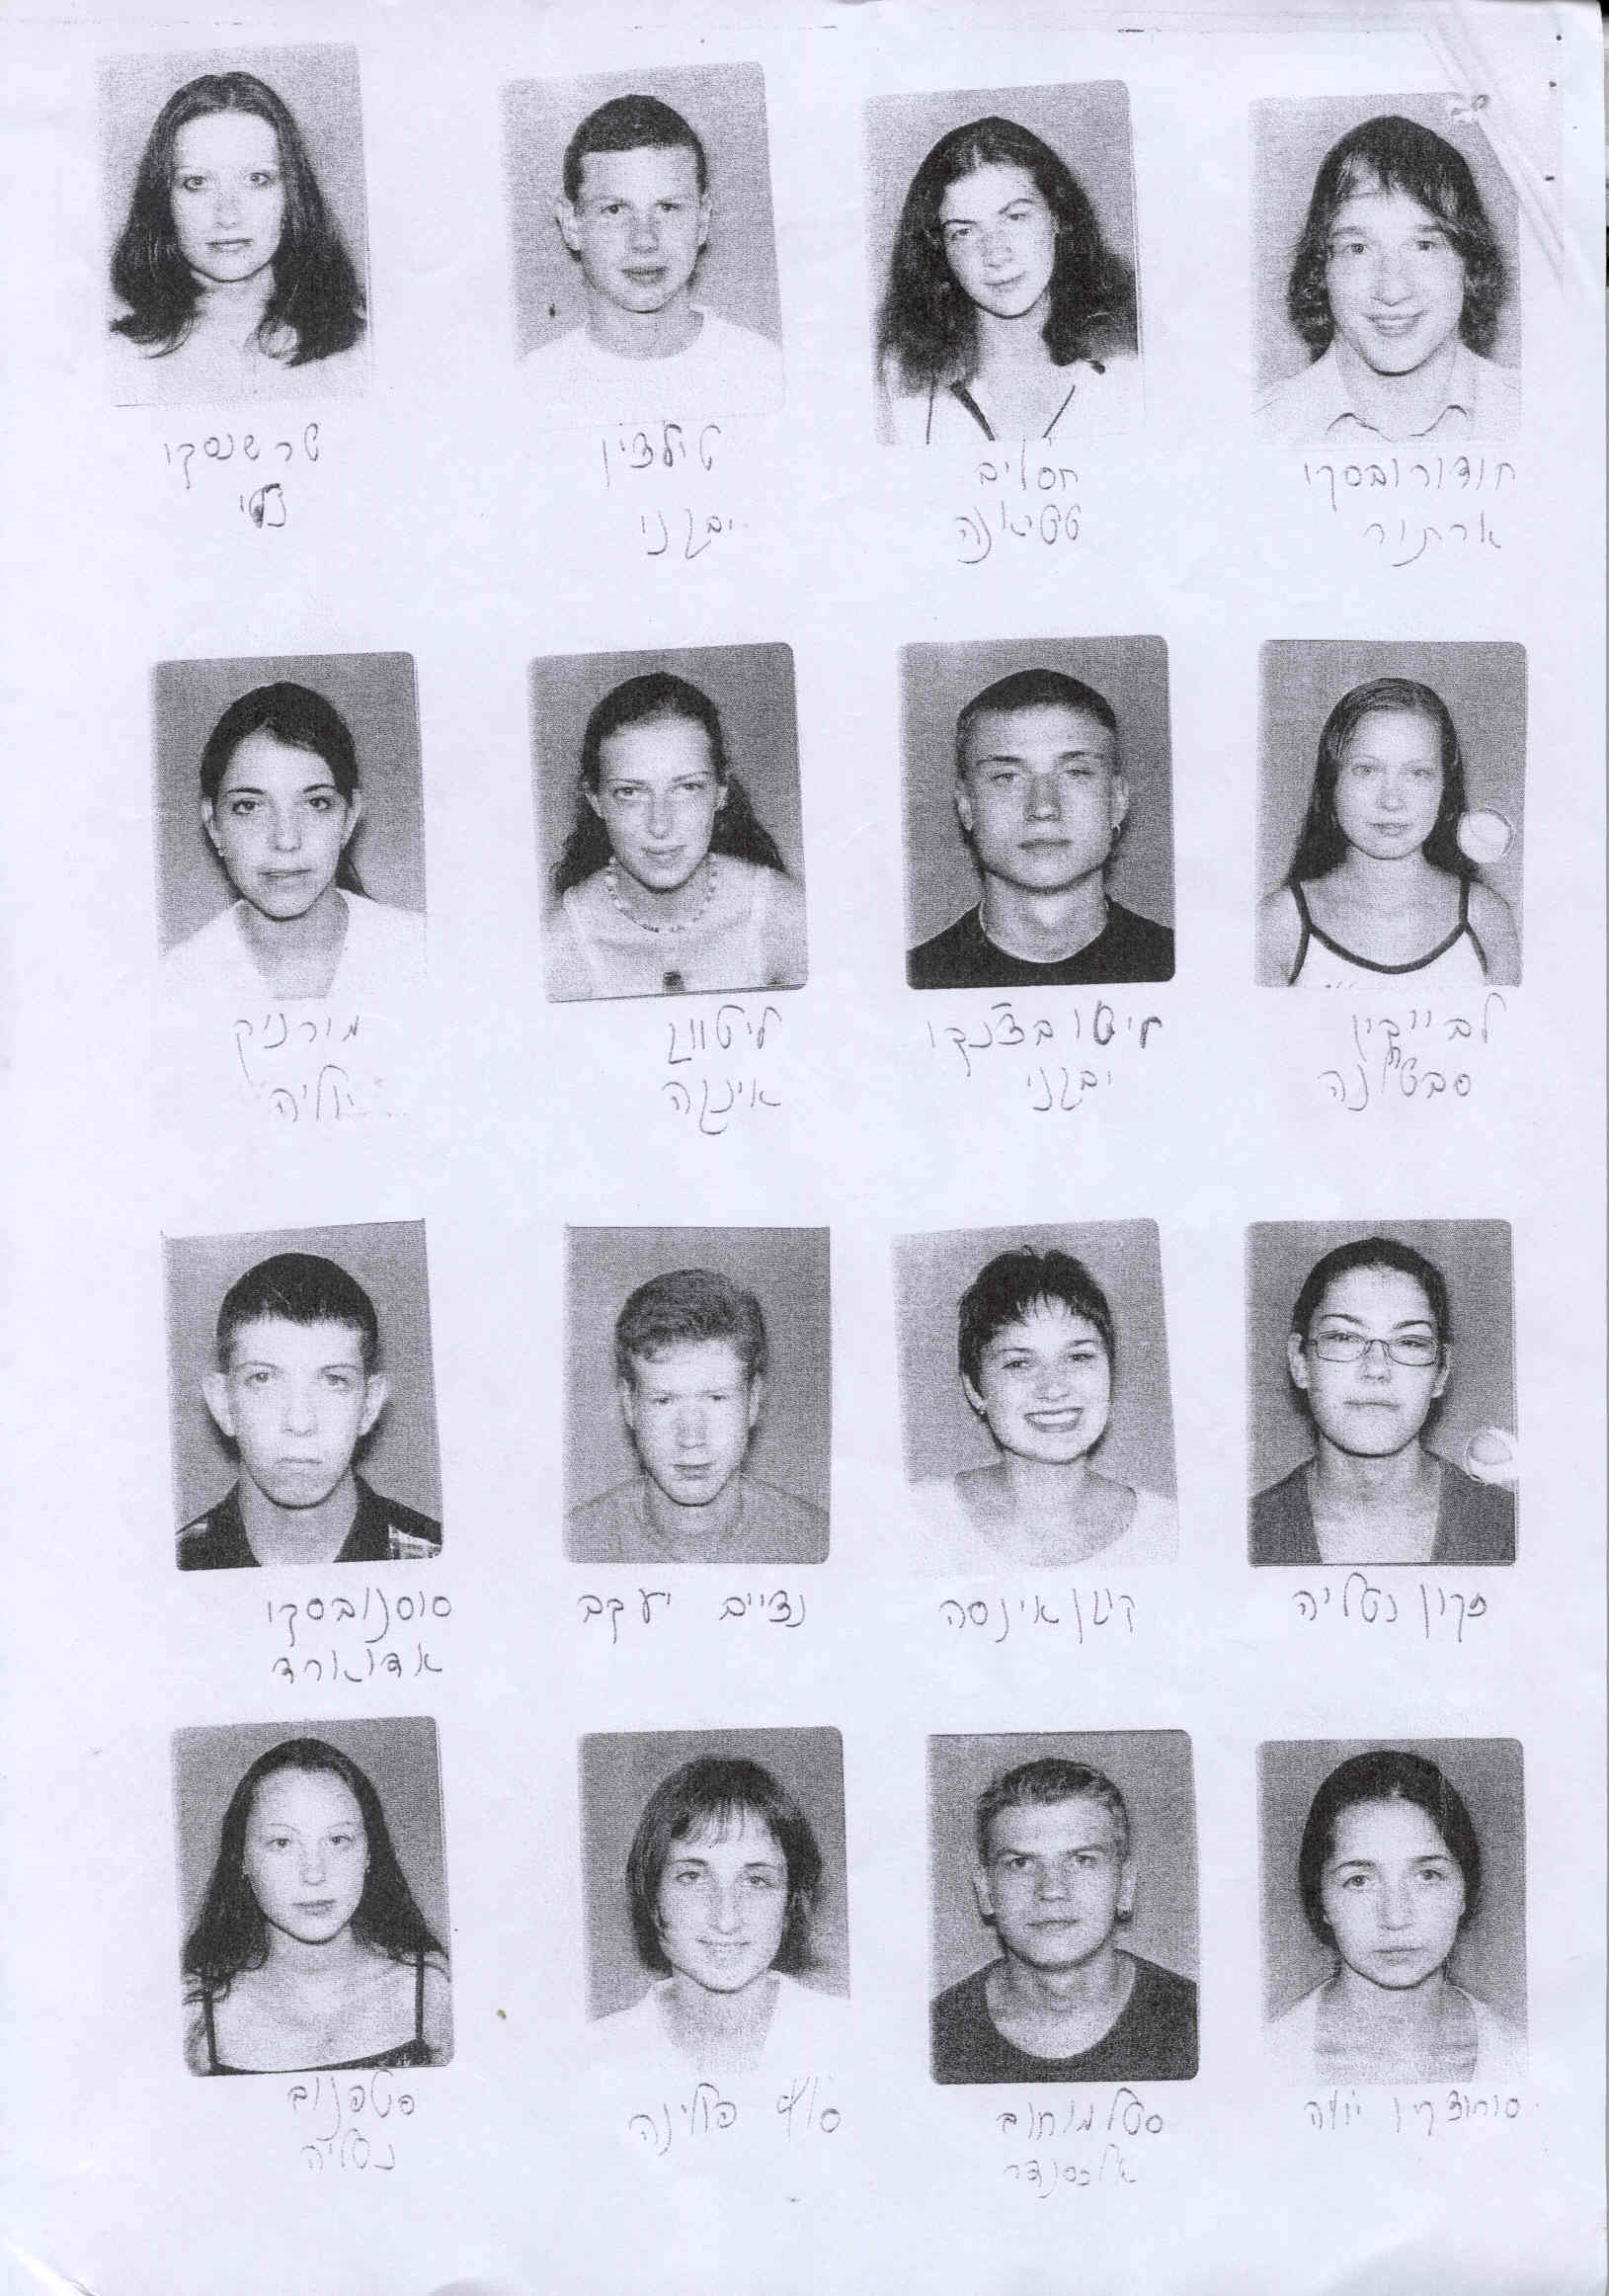 חודורובסקו
ארתור
חסליב
טטיאנה
טילצין
יבגני
טרשנסקו
לבייקין
סבטלנה
ליטובצ'נקו
יבגני
ליטווק
אינגה
מורניק
יוליה
מקון נטליה
קיטן אינסה
נציים יעקב
סוסנובסקו
אדוארד
יוליה
סטלמוחוב
אלכסנדר
פולינה
סטפנוב
נטליה